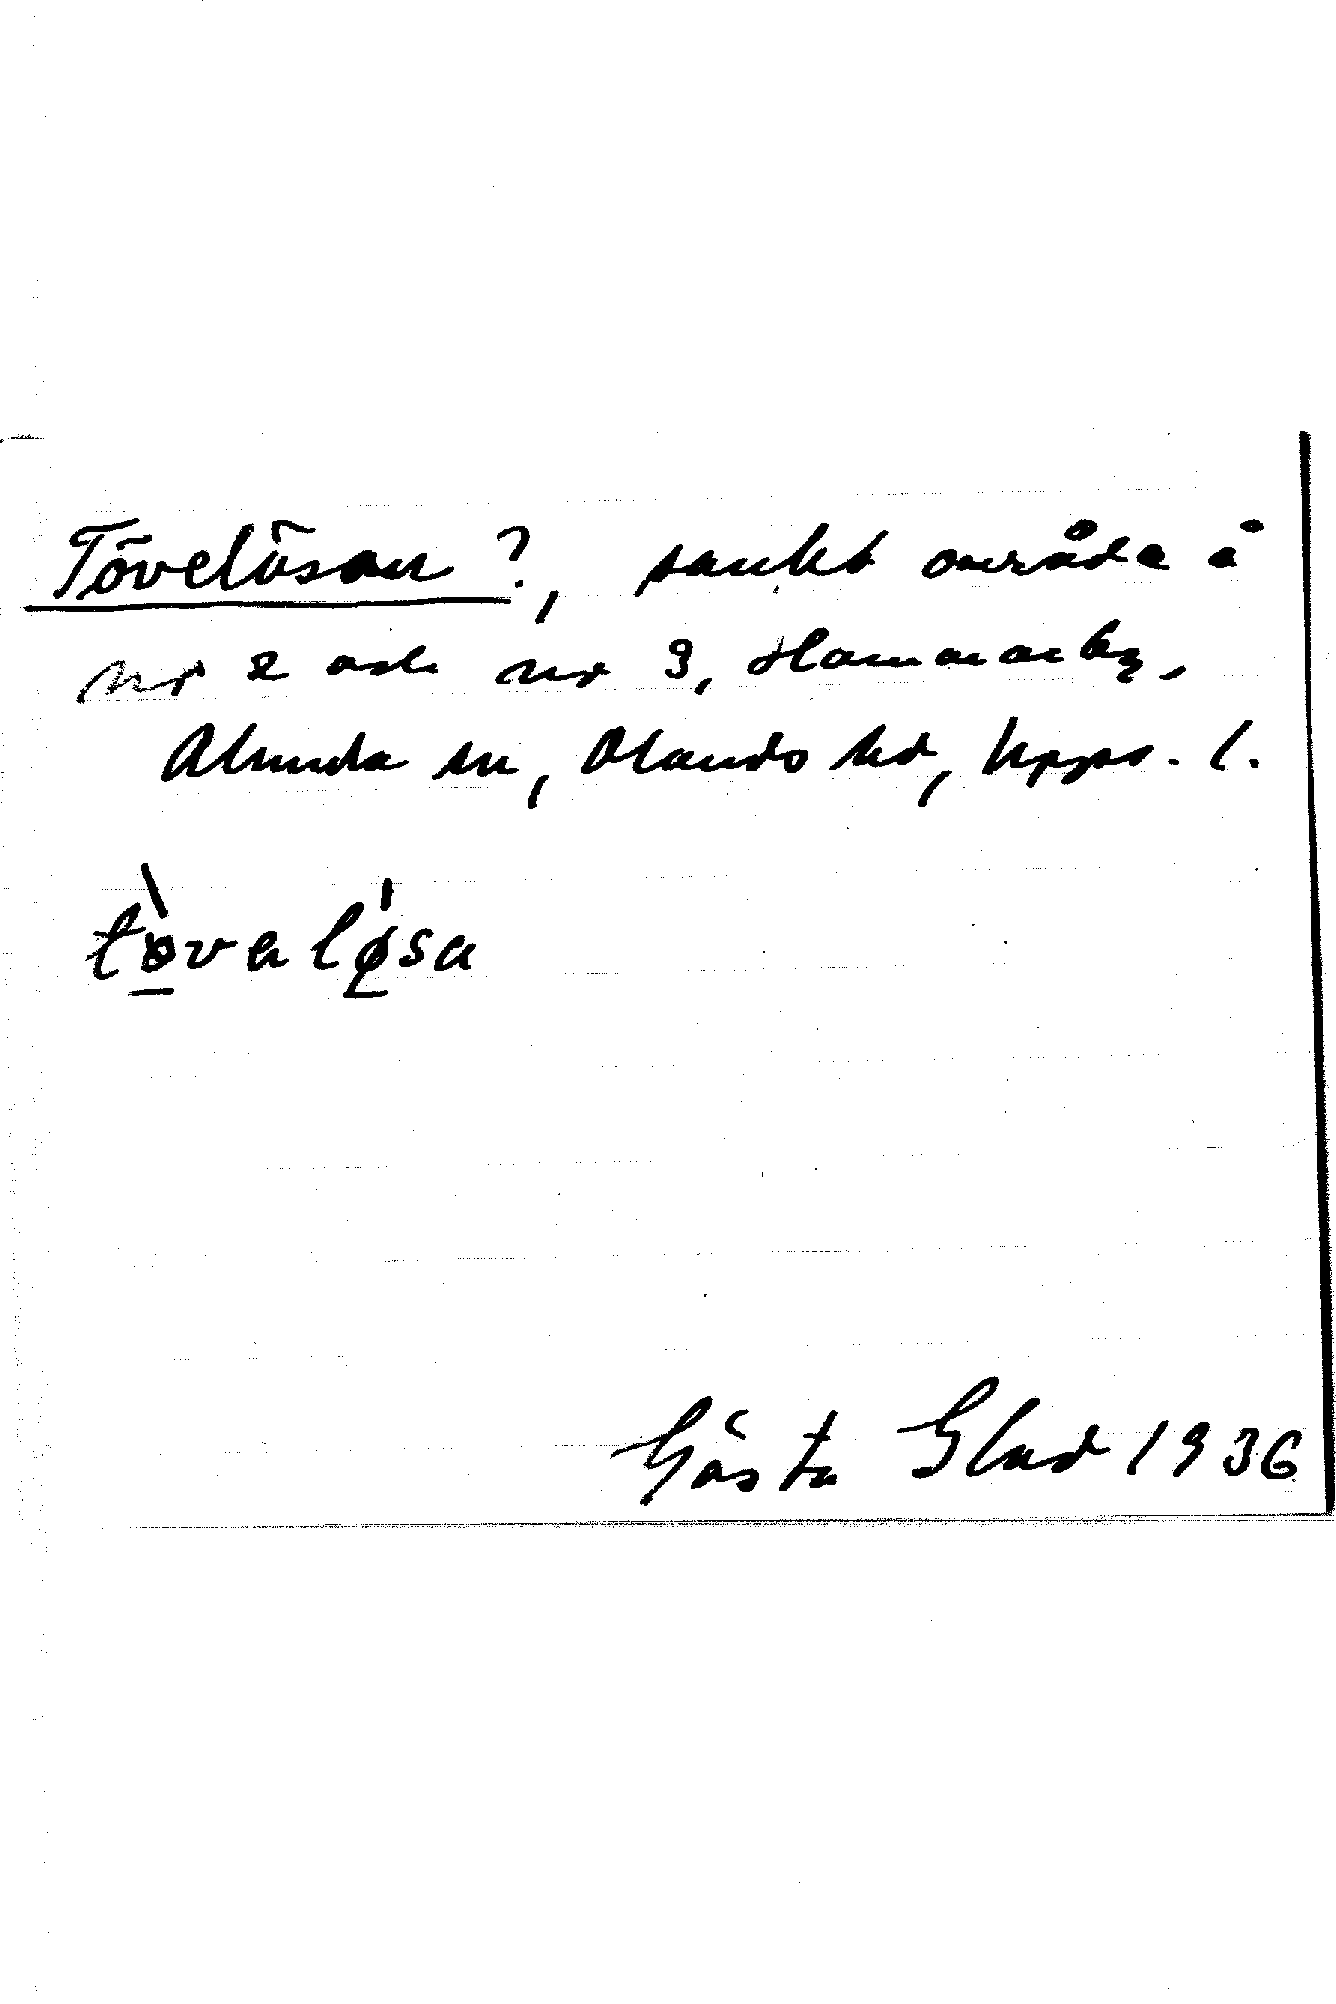 Tövelösan ?, sankt område å
nr 2 och nr 3, Hammarby,
Alunda sn, Olands hd, Upps. l.
tòvalǿsa
Gösta Glad 1936